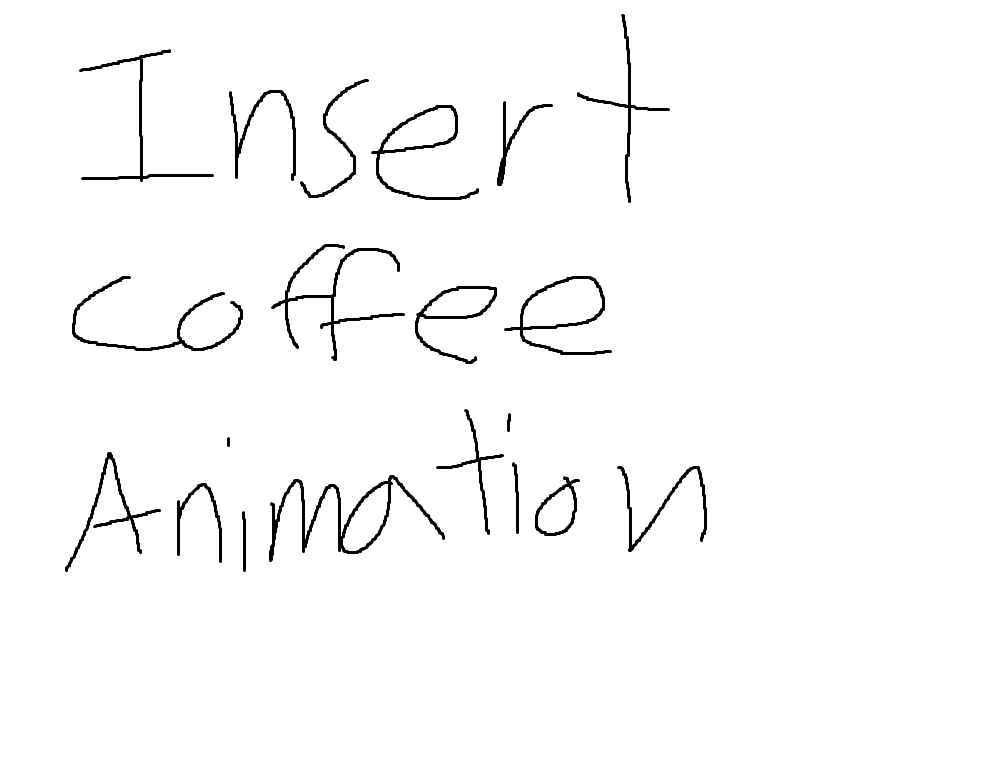 Insert
coffee
Animation